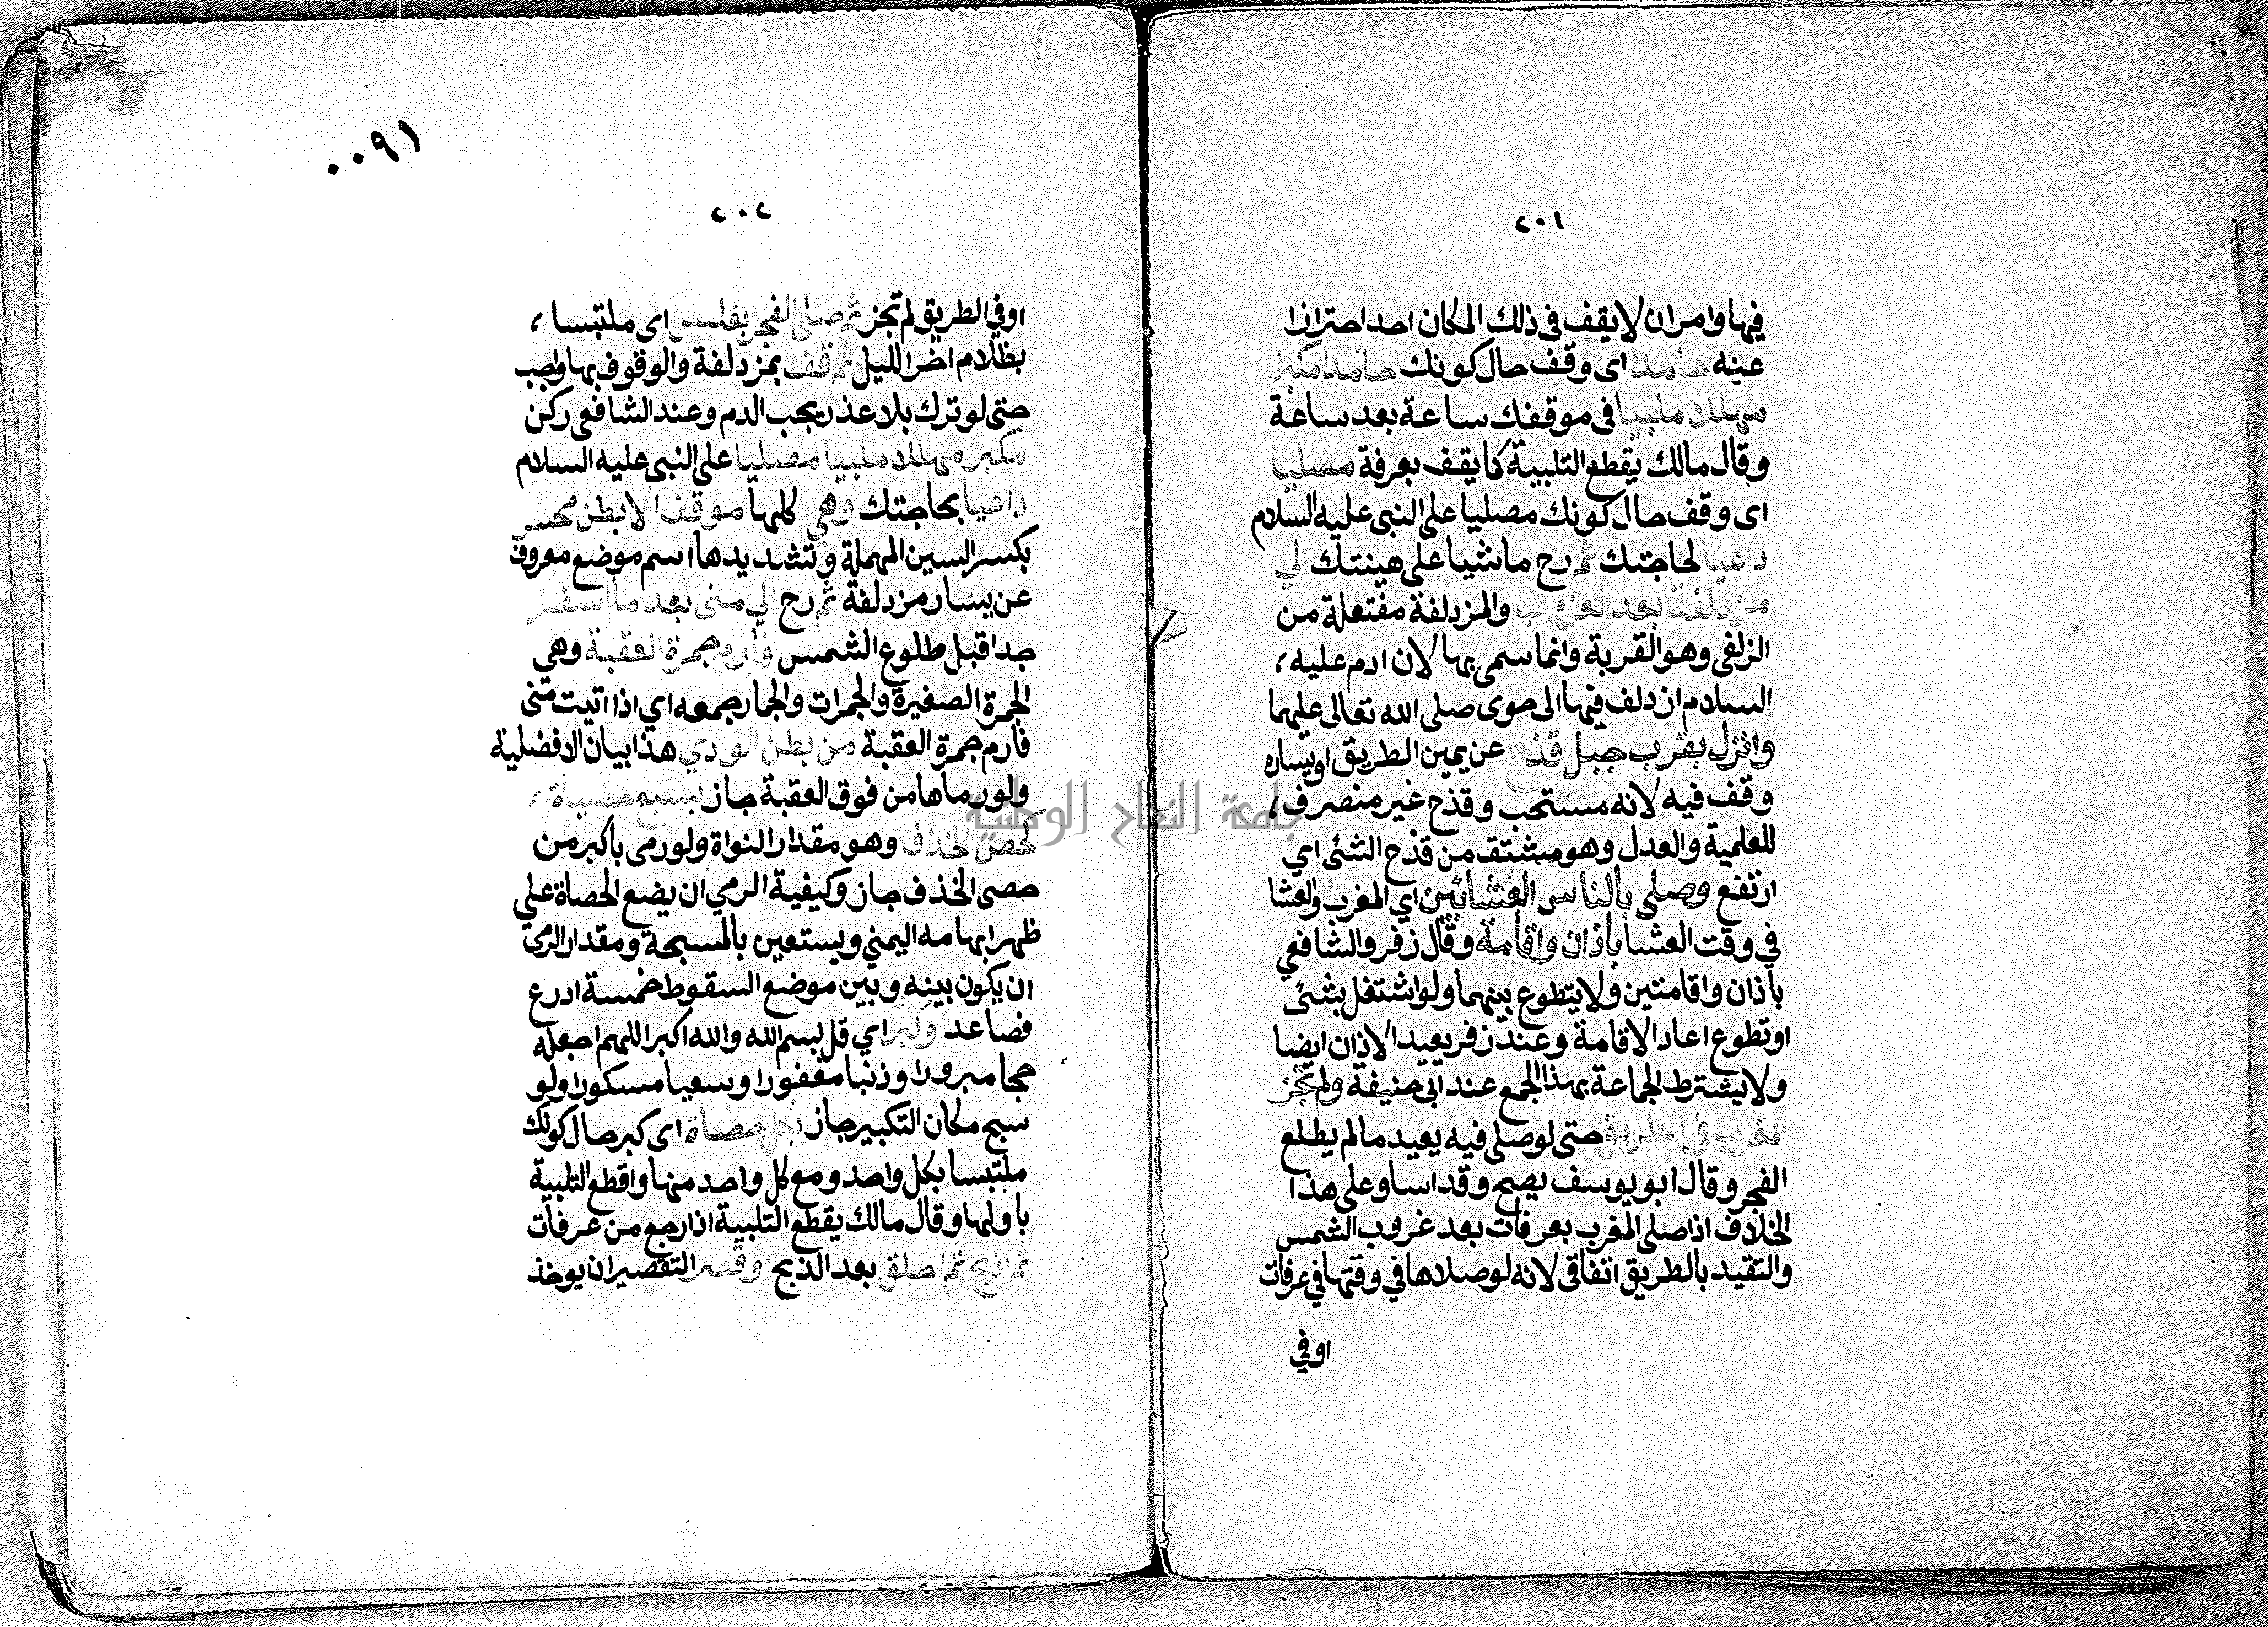 ٢٠١
فيها وامران لا يقف في ذلك المكان احد احترازا
عنه حامدا اى وقف حال كونك حامدا مكبرا
مهللا ملبيا فى موقفك ساعة بعد ساعة
وقال مالك يقطع التلبية كما يقف بعرفة مصليا
اى وقف حال كونك مصليا على النبى عليه السلام
داعيا لحاجتك ثم رح ماشيا على هينتك الي
مزدلفة بعد الغروب والمزدلفة مفتعلة من
الزلفى وهو القربة وانما سمى بها لان ادم عليه
السلام ازدلف فيها الى حوى صلى الله تعالى عليهما
وانزل بقرب جبل قذح عن يمين الطريق او يساره
وقف فيه لانه مستحب وقذح غير منصرف
للعلمية والعدل وهو مشتق من قذح الشئ اي
ارتفع وصلى بالناس العشائين اي المغرب والعشا
في وقت العشا باذان واقامة وقال زفر والشافعي
باذان واقامتين ولا يتطوع بينهما ولو اشتغل بشئ
او تطوع اعاد الاقامة وعند زفر يعيد الاذان ايضا
ولا يشترط الجماعة بهذا الجمع عند ابى حنيفة ولم تجز
المغرب في الطريق حتى لو صلى فيه يعيد ما لم يطلع
الفجر وقال ابو يوسف يصح وقد اسا وعلى هذا
الخلاف اذا صلى المغرب بعرفات بعد غروب الشمس
والتقيد بالطريق اتفاقى لانه لو صلاها في وقتها في عرفات
او في
٠٠٩١
٢٠٢
او في الطريق لم تجز ثم صلى الفجر بغلس اى ملتبسا
بظلام اخر الليل ثم قف بمزدلفة والوقوف بها واجب
حتى لو ترك بلا عذر يجب الدم وعند الشافعى ركن
مكبرا مهللا ملبيا مصليا على النبى عليه السلام
داعيا بحاجتك وهي كلها موقف الا بطن محسر
بكسر السين المهملة وتشديدها اسم موضع معروف
عن يسار مزدلفة ثم رح الي منى بعد ما اسفر
جدا قبل طلوع الشمس فارم جمرة العقبة وهي
الجمرة الصغيرة والجمرات والجمار جمعه اي اذا اتيت منى
فارم جمرة العقبة من بطن الوادي هذا بيان الافضلية
ولو رماها من فوق العقبة جاز بسبع حصياة
كحصى الخذف وهو مقدار النواة ولو رمى باكبر من
حصى الخذف جاز وكيفية الرمي ان يضع الحصاة على
ظهر ابهامه اليمني ويستعين بالمسبحة ومقدار الرمى
ان يكون بينه وبين موضع السقوط خمسة ادرع
فصاعد وكبر اي قل بسم الله والله اكبر اللهم اجعله
حجا مبرورا وذنبا مغفورا وسعيا مسكورا ولو
سبح مكان التكبير جاز بكل حصاة اى كبر حال كونك
ملتبسا بكل واحد ومع كل واحد منها واقطع التلبية
باولها وقال مالك يقطع التلبية اذا رجع من عرفات
ثم اذبح ثم احلق بعد الذبح او قصر التقصير ان يوخذ
جامعة النجاح الوطنية